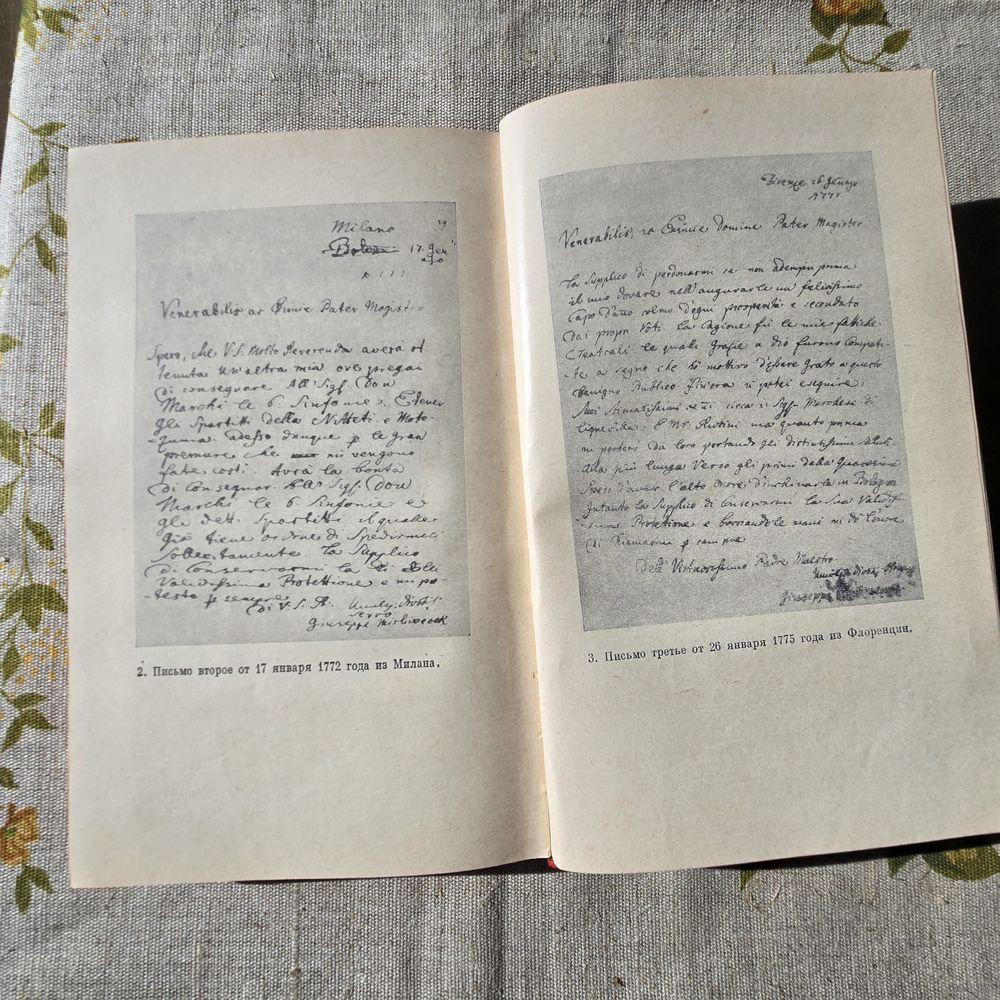 Milano
17. Gen
Venerabilis ac Eximie Pater Magister
Spero, che V. S. Molto Reverenda averà ot
tenuta un'altra mia ove pregai
di consegnare All Sigf. Don
Marchi le 6. Sinfonie. Et ener
gli Spartiti della Nitteti e Mote-
zuma adesso dunque p le gran
premure che mi vengono
fate costi. Avrà la bontà
di Consegnar. all Sigf. Don
Marchi le 6. Sinfonie e
gli dett. Spartiti il quale
già tiene ordine di Spedirmeli
Sollecitamente. La Supplico
di Conservarmi la di Lei
Validissima Protettione e mi po
testo p sempre
Di V. S. R. Umilis. Divot.
Servo
Giuseppe Misliwecek
2. Письмо второе от 17 января 1772 года из Милана.
Firenze 26 Genajo
Venerabilis, ac Eximie Domine Pater Magister
La Supplico di perdonarmi se non adempii prima
il mio dovere nell'augurarle un felicissimo
Capo d'Ano colmo d'ogni prosperità e secondato
Dai propri Voti. la Cagione fù le mie fattiche
Teatrali le quali Grazie a Dio furono Compati-
te a segno che hò motivo d'essere Grato a questo
Benign. Publico
circa il Sigf. Marchese di
Ligneville. E Mr. Rutini ma quanto prima
mi porterò da loro portando gli distintissimi
alla più lunga Verso gli primi della Quaresima
Spero d'aver l'alto onore d'inchinarla in Bologna
Intanto la Supplico di Conservarmi la Sua Validis
sima Protettione e baciandole mani mi dò l'onore
di Riamarmi p sempre
Dell' Virtuosissimo Padre Maestro
Giuseppe
3. Письмо третье от 26 января 1775 года из Флоренции.